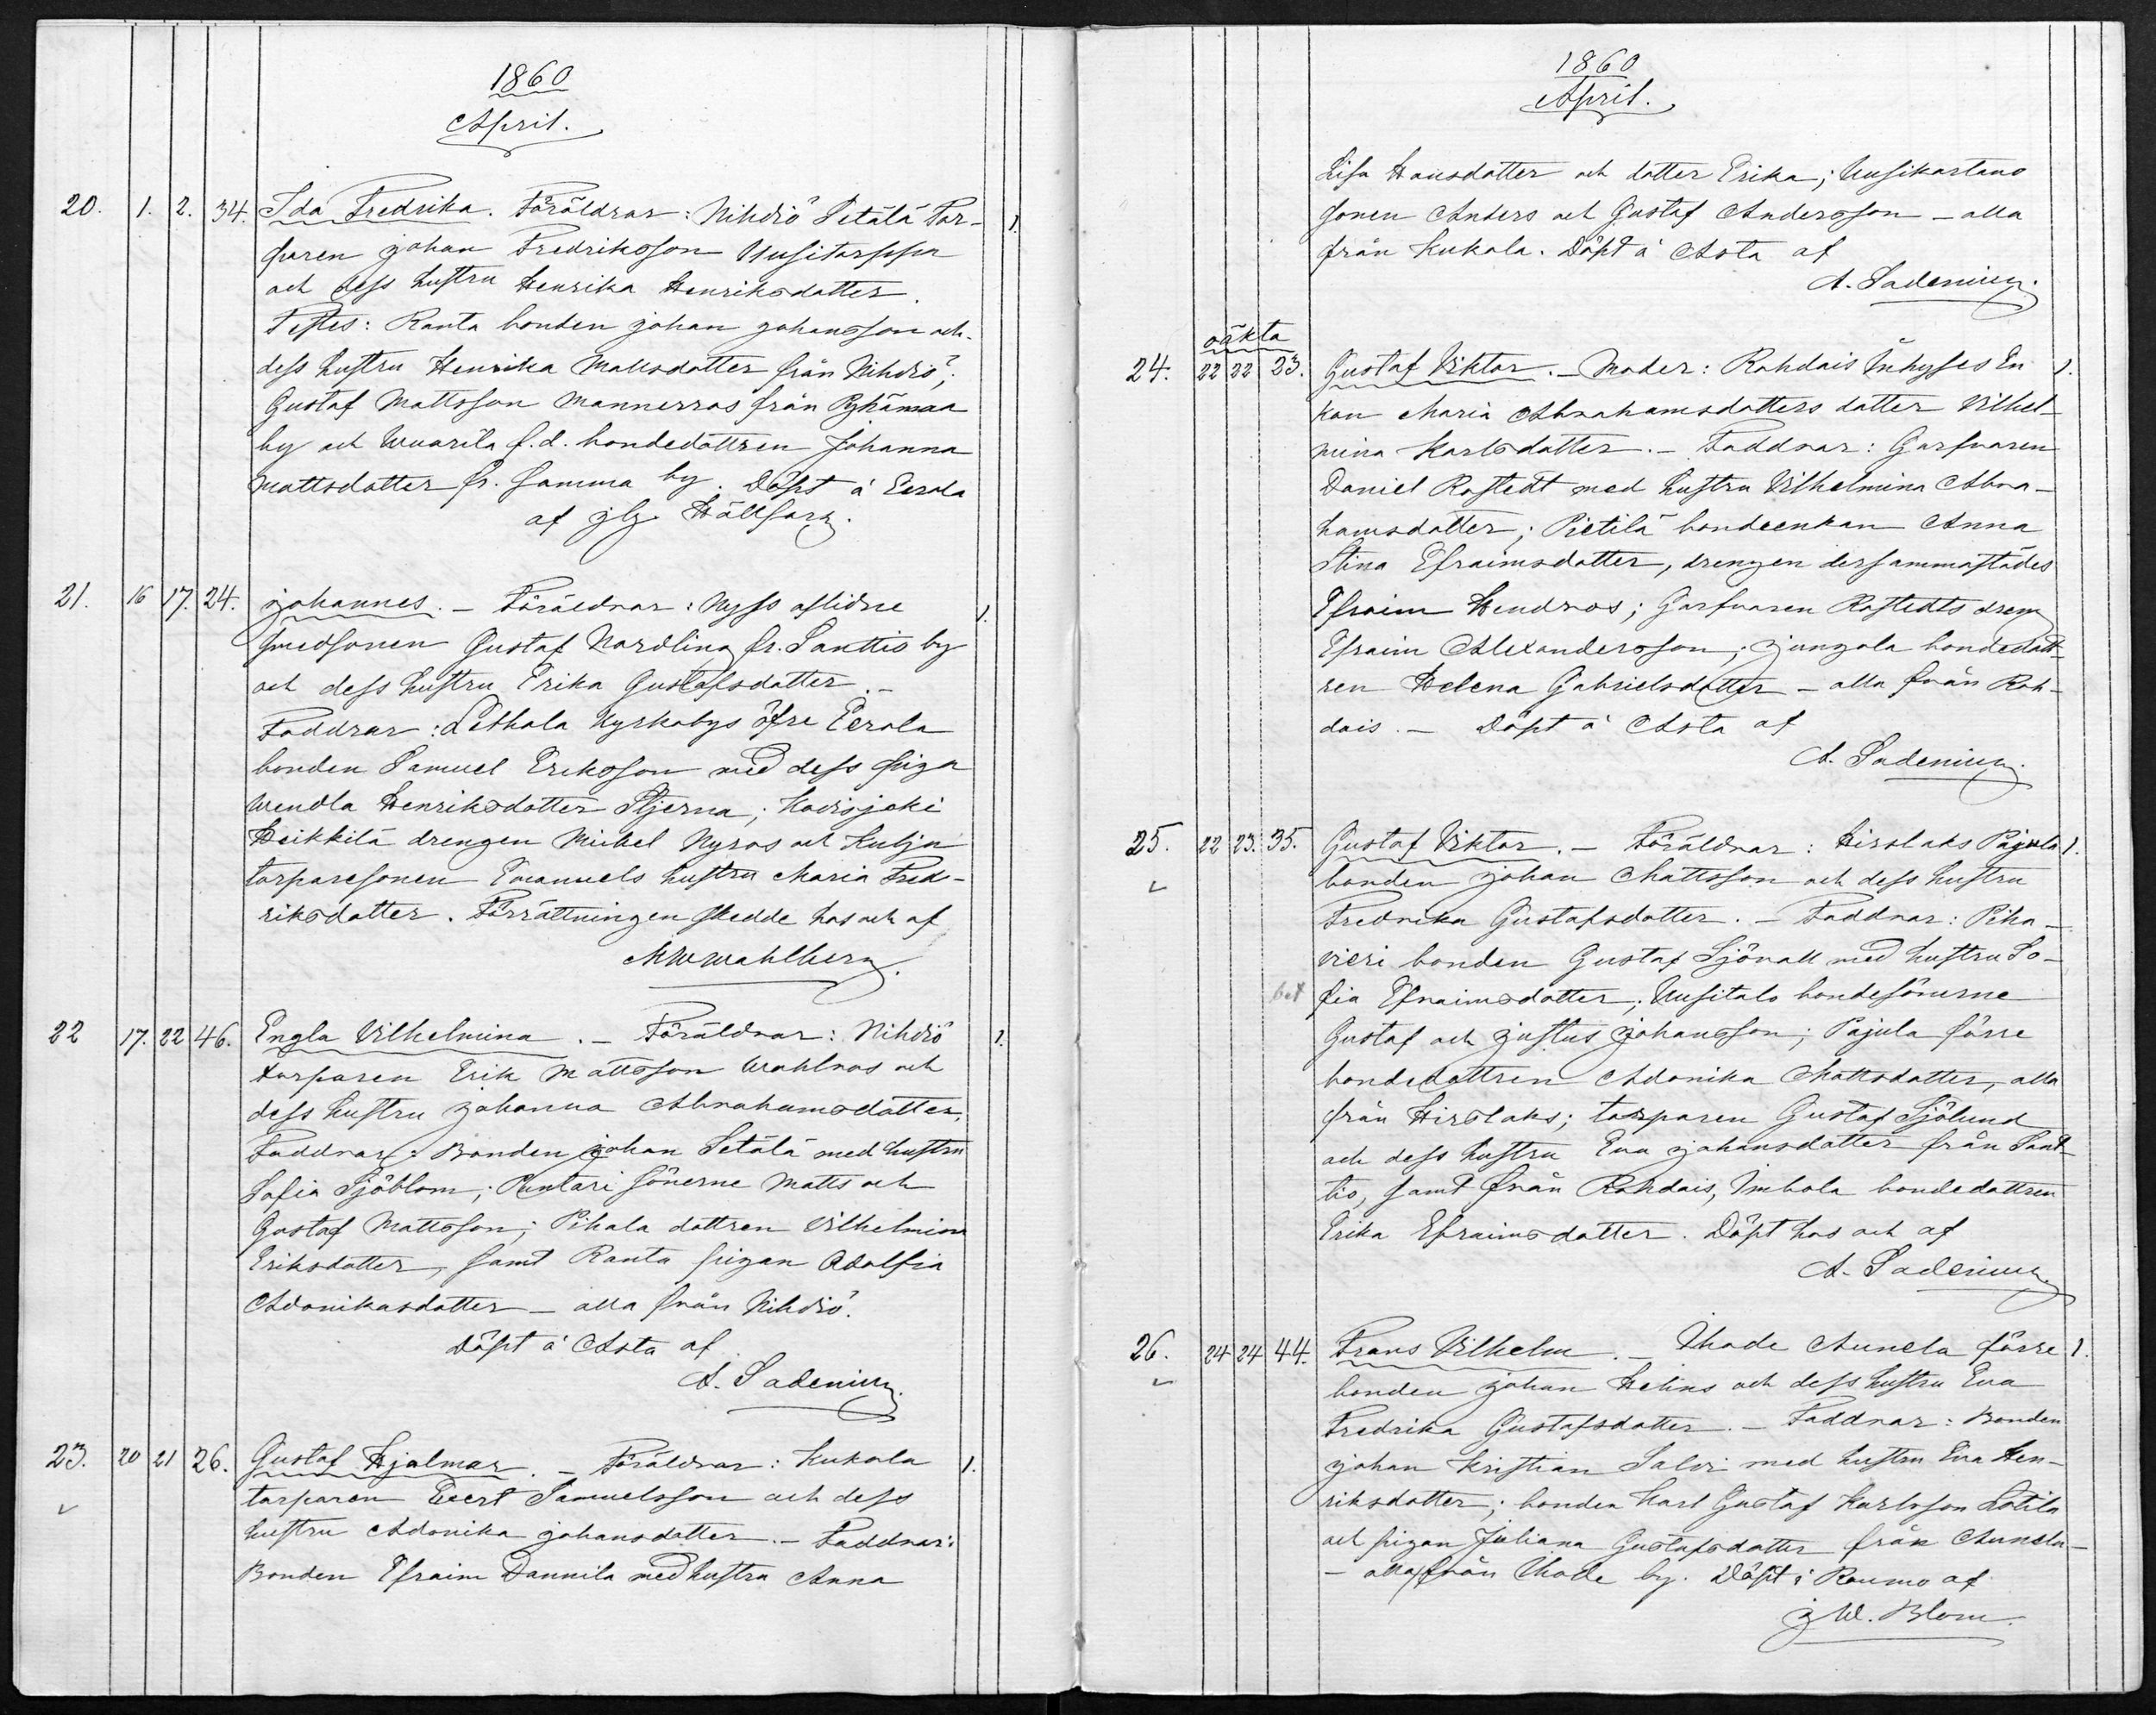 1860
April.
20. 1. 2. 34. Ida Fredrika. Föräldrar: Nihdiö Setälä Tor- 1.
paren Johan Fredriksson Uusitorppa
och dess hustru Henrika Henriksdotter.
Testes: Ranta bonden Johan Johansson och
dess hustru Henrika Mattsdotter från Nihdiö;
Gustaf Mattsson Mannerros från Pyhämaa
by och Wuorila f.d. bondedottren Johanna
Mattsdotter fr. samma by. Döpt å Eerola
af Hällfors.
21. 16 17. 24. Johannes. – Föräldrar: Nyss aflidne 1.
smedsonen Gustaf Nordling fr. Santtio by
och dess hustru Erika Gustafsdotter. –
Faddrar: Lethala Kyrkobys öfre Eerola
bonden Samuel Eriksson med dess piga
Wendla Henriksdotter Stjerna; Kovisjoki
Heikkilä drengen Mickel Nyroos och
torparesonen Emanuels hustru Maria Fred-
riksdotter. Förrättningen skedde hos och af
MWWahlberg.
22 17. 22 46. Engla Vilhelmina. – Föräldrar: Nihdiö 1.
torparen Erik Mattsson Wahlroos och
dess hustru Johanna Abrahamsdotter.
Faddrar: Bonden Johan Setälä med hustru
Sofia Sjöblom; Puntari sönerne Matts och
Gustaf Mattsson; Pihala dottren Vilhelmina
Eriksdotter, samt Ranta pigan Adolfia
Adonikasdotter – alla från Nihdiö.
Döpt å Arta af
A. Sadenius.
23. 20 21 26. Gustaf Hjalmar. – Föräldrar: Kukola 1.
torparen Evert Samuelsson och dess
hustru Adonika Johansdotter. – Faddrar:
Bonden Efraim Dannila med hustru Anna
1860
April.
Lisa Hansdotter och dotter Erika; Uusikartano
sonen Anders och Gustaf Andersson – alla
från Kukola. Döpt å Arta af
A. Sadenius.
oäkta
24. 22 22 23. Gustaf Viktor. – Moder: Rohdais Inhyses En 1.
kan Maria Abrahamsdotters dotter Vilhel-
mina Karlsdotter. – Faddrar: Garfvaren
Daniel Rostedt med hustru Vilhelmina Abra-
hamsdotter; Pietilä bondeenkan Anna
Stina Efraimsdotter, drengen dersammastädes
Efraim Hendroos; Garfvaren Rostedts dreng
Efraim Alexandersson; Junnola bondedott-
ren Helena Gabrielsdotter – alla från Roh-
dais. – Döpt å Arta af
A. Sadenius.
25. 22 23. 35. Gustaf Viktor. – Föräldrar: Hirslaks Pajula 1.
bonden Johan Mattsson och dess hustru
Fredrika Gustafsdotter. – Faddrar: Piha-
vieri bonden Gustaf Sjövall med hustru So-
fia Efraimsdotter; Uusitalo bondesönerne
Gustaf och Justus Johansson; Pajula förre
bondedottren Adonika Mattsdotter, alla
från Hirslaks; torparen Gustaf Sjölund
och dess hustru Eva Johansdotter från Sant-
tio, samt från Rohdais, Imhola bondedottren
Erika Efraimsdotter. Döpt hos och af
A. Sadenius.
26. 24 24 44. Frans Vilhelm. – Ihode Aunela förre 1.
bonden Johan Helins och dess hustru Eva
Fredrika Gustafsdotter. – Faddrar: Bonden
Johan Kristian Salvi med hustru Eva Hen-
riksdotter; bonden Karl Gustaf Karlsson Lötilä
och pigan Juliana Gustafsdotter från Aunela –
– alla från Ihode by. Döpt i Raumo af
J W. Blom.